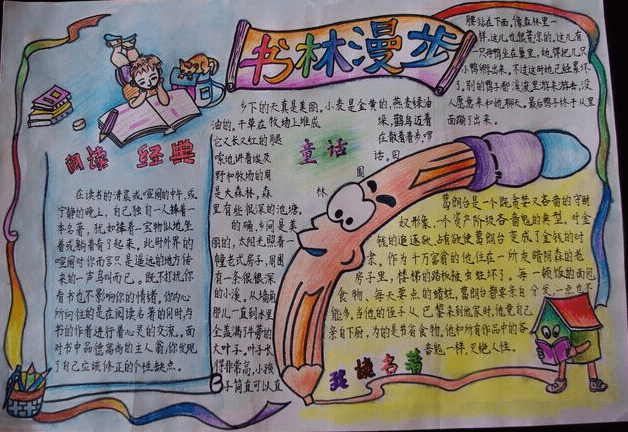 书林漫步
阅读 经典
在读书的清晨或喧闹的中午,或
宁静的晚上,自己独自一人捧着一
本名著,犹如捧着一宝物似地,坐
着或躺着看了起来,此时外界的
喧闹对你而言只是遥远的地方传
来的一声鸟叫而已。既不打扰你
看书也不影响你的情绪,你内心
所向往的是在阅读名著的同时与
书的作者进行着心灵的交流。面
对书中品德高尚的主人翁,你发现
了自己应该修正的个性缺点。
童话
乡下的天真是美丽。小麦是金黄的,燕麦绿油
油的。干草在牧场上堆成垛,鹳鸟迈着
它又长又红的腿在散着步,啰
嗦地讲着埃及话。田
野和牧场的周围
是大森林,森林
里有些很深的池塘。
的确,乡间是美
丽的,太阳光照着一
幢老式房子,周围
有一条很深
的小溪。从墙角
那儿一直到水里
全盖满了牛蒡的
大叶子。叶子长
得非常高,小孩
子简直可以直
腰站在下面。像森林里一
样,这儿也很荒凉的。这儿有
一只母鸭坐在窠里,她得把几只
小鸭孵出来。不过这时她已经累坏
了。别的鸭子都溪流里游来游去,没
人愿意来和她聊天。最后鸭子终于从里
面蹦了出来。
葛朗台是一个既贪婪又吝啬的守财
奴形象,一个资产阶级吝啬鬼的典型。对金
钱的追逐欲、占有欲使葛朗台变成了金钱的对
家,作为千万富翁的他,住在一所灰暗阴森的老
房子里,楼梯的踏板被虫蛀坏了。每一顿饭的面包
食物、每天要点的蜡烛,葛朗台都要亲自分发,一点也不
能多,当他的侄子从巴黎来到他家时,他竟自己
亲自下厨,为的是节省食物。他和所有作品中的吝
啬鬼一样,灭绝人性。
我读名著